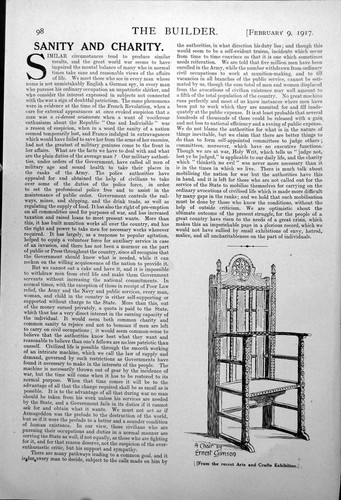 98
THE BUILDER.
[FEBRUARY 9, 1917.
SANITY AND CHARITY.
SIMILAR circumstances tend to produce similar
results, and the great world war seems to have
impaired the mental balance of many who in normal
times take sane and reasonable views of the affairs
of life. We meet those who see in every man whose
name is not unmistakably English a German spy, in every man
who pursues his ordinary occupation an unpatriotic shirker, and
who consider the interest expressed in subjects not connected
with the war a sign of doubtful patriotism. The same phenomena
were in evidence at the time of the French Revolution, when a
care for external appearances and the exercise of ordinary common
sense was a evidence aristocrate when a want of vociferous
enthusiasm about the Republic "One and Indivisible" was
a reason of suspicion, when in a word the sanity of a nation
seemed temporarily lost, and France indulged in extravagances
which would have failed to save her from the errors of her enemies,
had not the greatest of military geniuses come to the front in
her affairs. What are the facts we have to deal with and what
are the plain duties of the average man? Our military authorities,
under orders of the Government, have called all men of
military age and sound health to take their places in
the ranks of the Army. The police authorities have
appealed for and obtained the help of civilians to take
over some of the duties of the police force, in order
to set the professional police free and to assist in the
maintenance of public order. Government controls the railways,
mines, and shipping, and the drink trade, as well as
regulating the supply of food. It has also the right of pre-emption
on all commodities used for purposes of war, and has increased
taxation and raised loans to meet present wants. More than
this, it has built munition works all over the country, and has
the right and power to take men for necessary works wherever
required. It has largely, as a response to popular agitation,
helped to equip a volunteer force for auxiliary service in case
of an invasion, and there has not been a murmur on the part
of public or Press throughout the country, since all recognise that
the Government should know what is needed, while it can
reckon on the willing acquiescence of the nation to provide it.
But we cannot eat a cake and have it, and it is impossible
to withdraw men from civil life and make them Government
servants without increasing the national commitments. In
normal times, with the exception of those in receipt of Poor Law
relief, the Army and the Navy and public services, every man,
woman, and child in the country is either self-supporting or
supported without charge to the State. More than this, out
of the money earned privately, a quota is paid to the State,
which thus has a very direct interest in the earning capacity of
the individual. It would seem both common charity and
common sanity to rejoice and not to bemoan if men are left
to carry on civil occupations; it would seem common-sense to
believe that the authorities know best what they want and
reasonable to believe than one's fellows are as less patriotic than
oneself. Civilised life is possible through the smooth working
of an intricate machine, which we call the law of supply and
demand, governed by such restrictions as Governments have
found it necessary to make in the interests of the people. The
machine is necessarily thrown out of gear by the incidence of
war, but the time will come when it has to be restored to its
normal purpose. When that time comes it will be to the
advantage of all that the change required shall be as small as is
possible. It is to the advantage of all that during war no man
should be taken from his work unless his services are needed
by the State, and a Government fails in its duties if it cannot
ask for and obtain what it wants. We must not act as if
Armageddon was the prelude to the destruction of the world,
but as if it were the prelude to a better and a sounder condition
of human existence. In our view, those civilians who are
pursuing their occupations and duties in a normal manner are
serving the State as well, if not equally, as those who are fighting
for it, and for that reason deserve, not the suspicion of the over-
enthusiastic critic, but his support and sympathy.
There are many pathways leading to a common goal, and it
is for every man to decide, subject to the calls made on him by
the authorities, in what direction his duty lies; and though this
would seem to be a self-evident truism, incidents which occur
from time to time convince us that it is one which sometimes
needs reiteration. We are told that five million men have been
enrolled in the Army, while the number withdrawn from ordinary
civil occupations to work at munition-making, and to fill
vacancies in all branches of the public service, cannot be estimated
by us, though the sum total of men and women displaced
from the avocations of civilian existence may well amount to
a fifth of the total population of the country. No great machine
runs perfectly and most of us know instances where men have
been put to work which they are unsuited for and ill inade-
quately at the public expense. It is at least probable that several
hundreds of thousands of these could be released with a gain and
not loss to national efficiency and a saving of public expense.
We do not blame the authorities for what is in the nature of
things inevitable, but we claim that there are better things to
do than to form self-appointed committees to judge other's
motives, moreover, which have no executive functions.
Though we are at war, Holy Writ, which bids us "judge not,
lest ye be judged," is applicable to our daily life, and the charity
which "thinketh no evil" was never more necessary than it
is in the times in which we live. There is much talk about
mobilising the nation for war but the authorities have this
in hand, and it is left for those who are not called out for the
service of the State to mobilise themselves for carrying on the
ordinary avocations of civilised life which is made more difficult
by many gaps in the ranks; and we hold that such mobilisations
must be done by those who know the conditions, without the
help of outside criticism. We are optimistic about the
ultimate outcome of the present struggle, for the people of a
great country have risen to the needs of a great crisis, which
makes this an imperishable page in a glorious record, which we
would not have sullied by small exhibitions of envy, hatred,
malice, and all uncharitableness on the part of individuals.
A Chair by
Ernest Gimson
[From the recent Arts and Crafts Exhibition.]